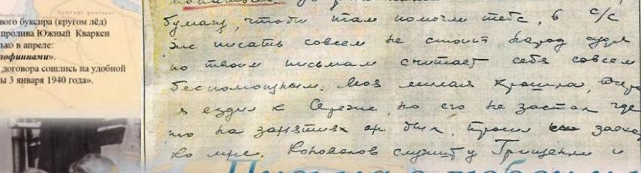 вого буксира (кругом лёд)
пролива Южный Кваркен
ько в апреле:
нофиннами».
договора сошлись на удобной
ы 3 января 1940 года».
бумагу, чтобы там помогли тебе, в с/с
же писать совсем не стоит народ судя
по твоим письмам считает себя совсем
беспомощным. Моя милая крошка, вчера
я ездил к Сереже, но его не застал где
то на занятиях он был, просил заехать
ко мне. Коновалов служит у Грищенки и